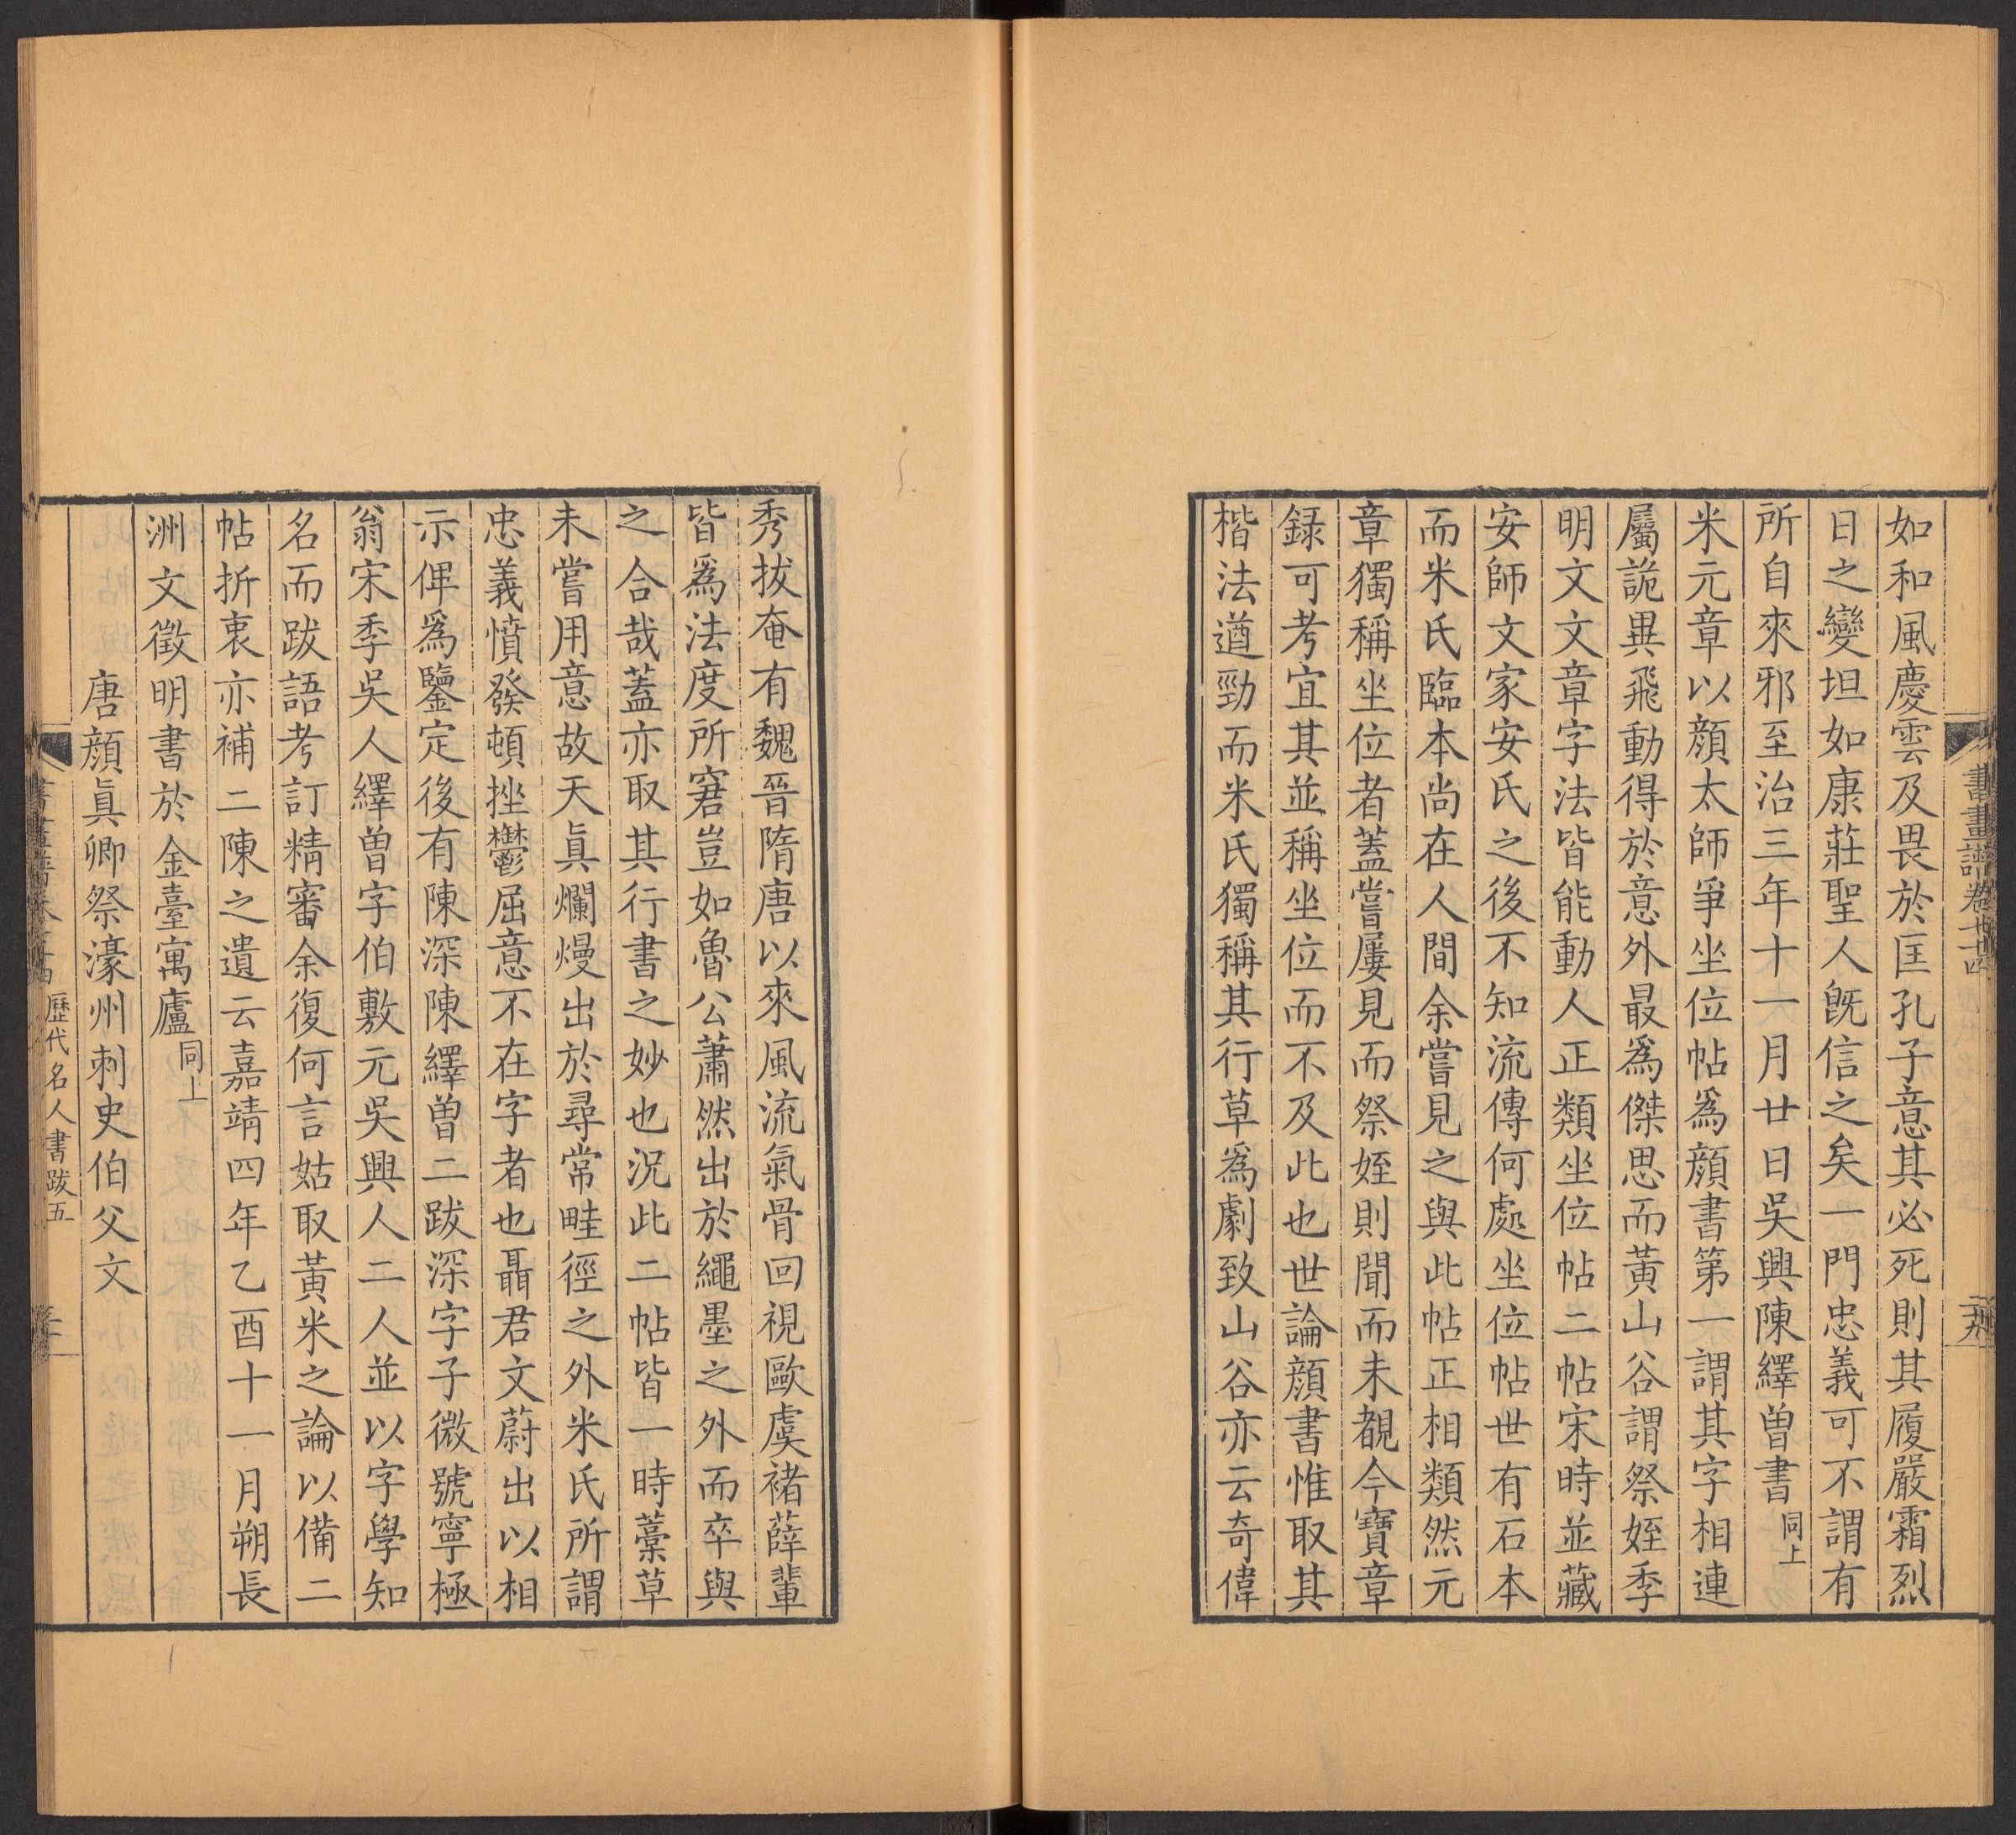 如和風慶雲及畏於匡孔子意其必死則其履嚴霜烈
日之變坦如康莊聖人旣信之矣一門忠義可不謂有
所自來邪至治三年十一月廿日吳興陳繹曾書同上
米元章以顏太師爭坐位帖爲顏書第一謂其字相連
屬詭異飛動得於意外最爲傑思而黃山谷謂祭姪季
明文文章字法皆能動人正類坐位帖二帖宋時並藏
安師文家安氏之後不知流傳何處坐位帖世有石本
而米氏臨本尚在人間余嘗見之與此帖正相類然元
章獨稱坐位者蓋嘗屢見而祭姪則聞而未覩今寶章
録可考宜其並稱坐位而不及此也世論顏書惟取其
楷法遒勁而米氏獨稱其行草爲劇致山谷亦云奇偉
秀拔奄有魏晉隋唐以來風流氣骨回視歐虞褚薛輩
皆爲法度所窘豈如魯公蕭然出於繩墨之外而卒與
之合哉蓋亦取其行書之妙也況此二帖皆一時藁草
未嘗用意故天眞爛熳出於尋常畦徑之外米氏所謂
忠義憤發頓挫鬱屈意不在字者也聶君文蔚出以相
示俾爲鑒定後有陳深陳繹曾二跋深字子微號寧極
翁宋季吳人繹曾字伯敷元吳興人二人並以字學知
名而跋語考訂精審余復何言姑取黃米之論以備二
帖折衷亦補二陳之遺云嘉靖四年乙酉十一月朔長
洲文徵明書於金臺寓廬同上
唐顏眞卿祭濠州刺史伯父文
書畫譜卷七十四
歷代名人書跋五